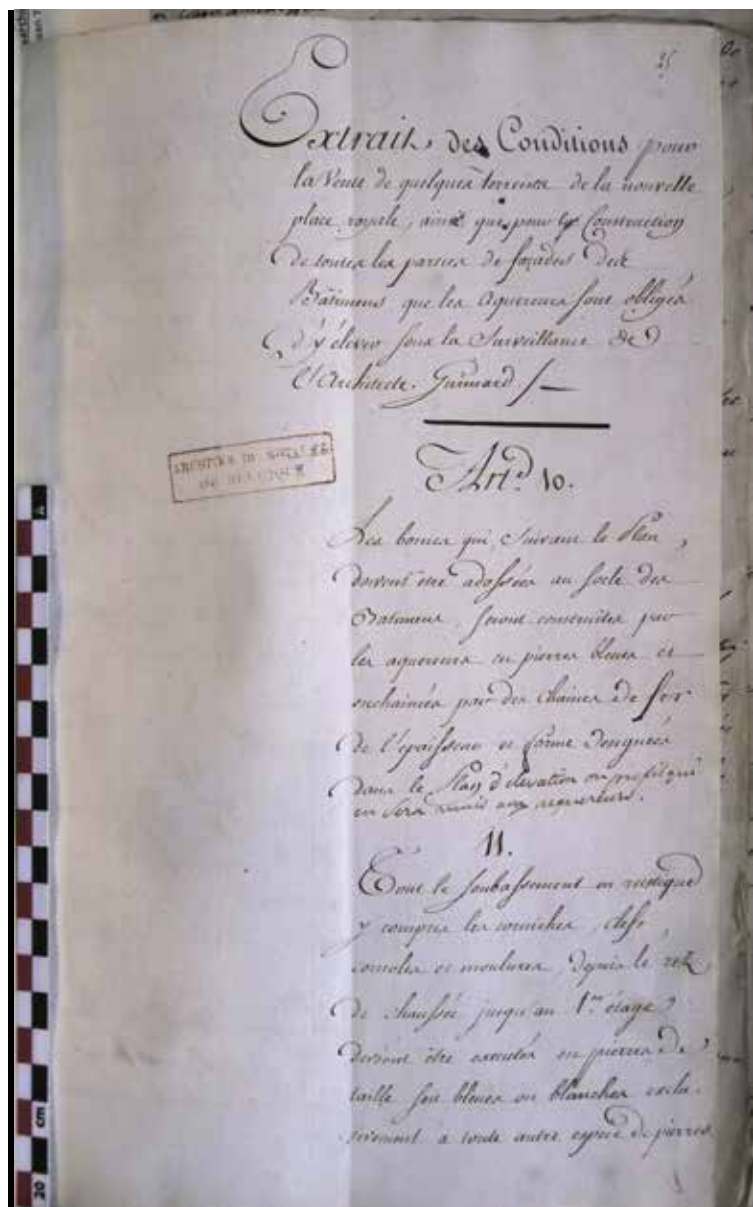 25
Extrait des Conditions pour
la Vente de quelques terreins de la nouvelle
place royale, ainsi que pour la Construction
de toutes les parties de façades des
Bâtimens que les Aquereurs sont obligés
d'y élever sous la Surveillance de
l'Architecte Guimard
Art. 10.
Les bornes qui, suivant le Plan,
doivent être adossées au socle des
Batimens, seront construites par
les aquereurs en pierres bleues et
enchainées par des chaines de fer
de l'épaisseur et forme designées
dans le Plan d'élevation ou profil qui
en sera remis aux aquereurs.
11.
Tout le soubassement en rustique
y compris les corniches, clefs,
consoles et moulures, depuis le rez
de chaussée jusqu'au 1er étage
devront être executés en pierres de
taille soit bleues ou blanches exclu-
sivement à toute autre espece de pierres
ARCHIVES DU ROYAUME
DE BELGIQUE
20 cm